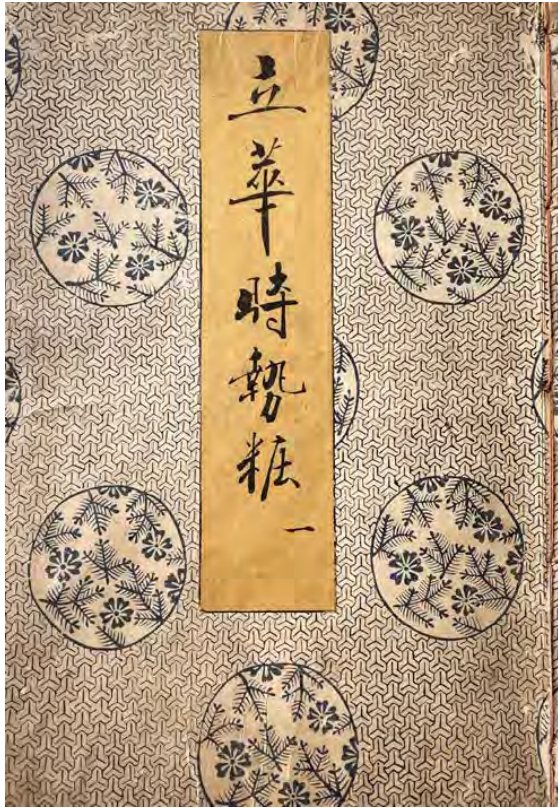 立華時勢粧
一